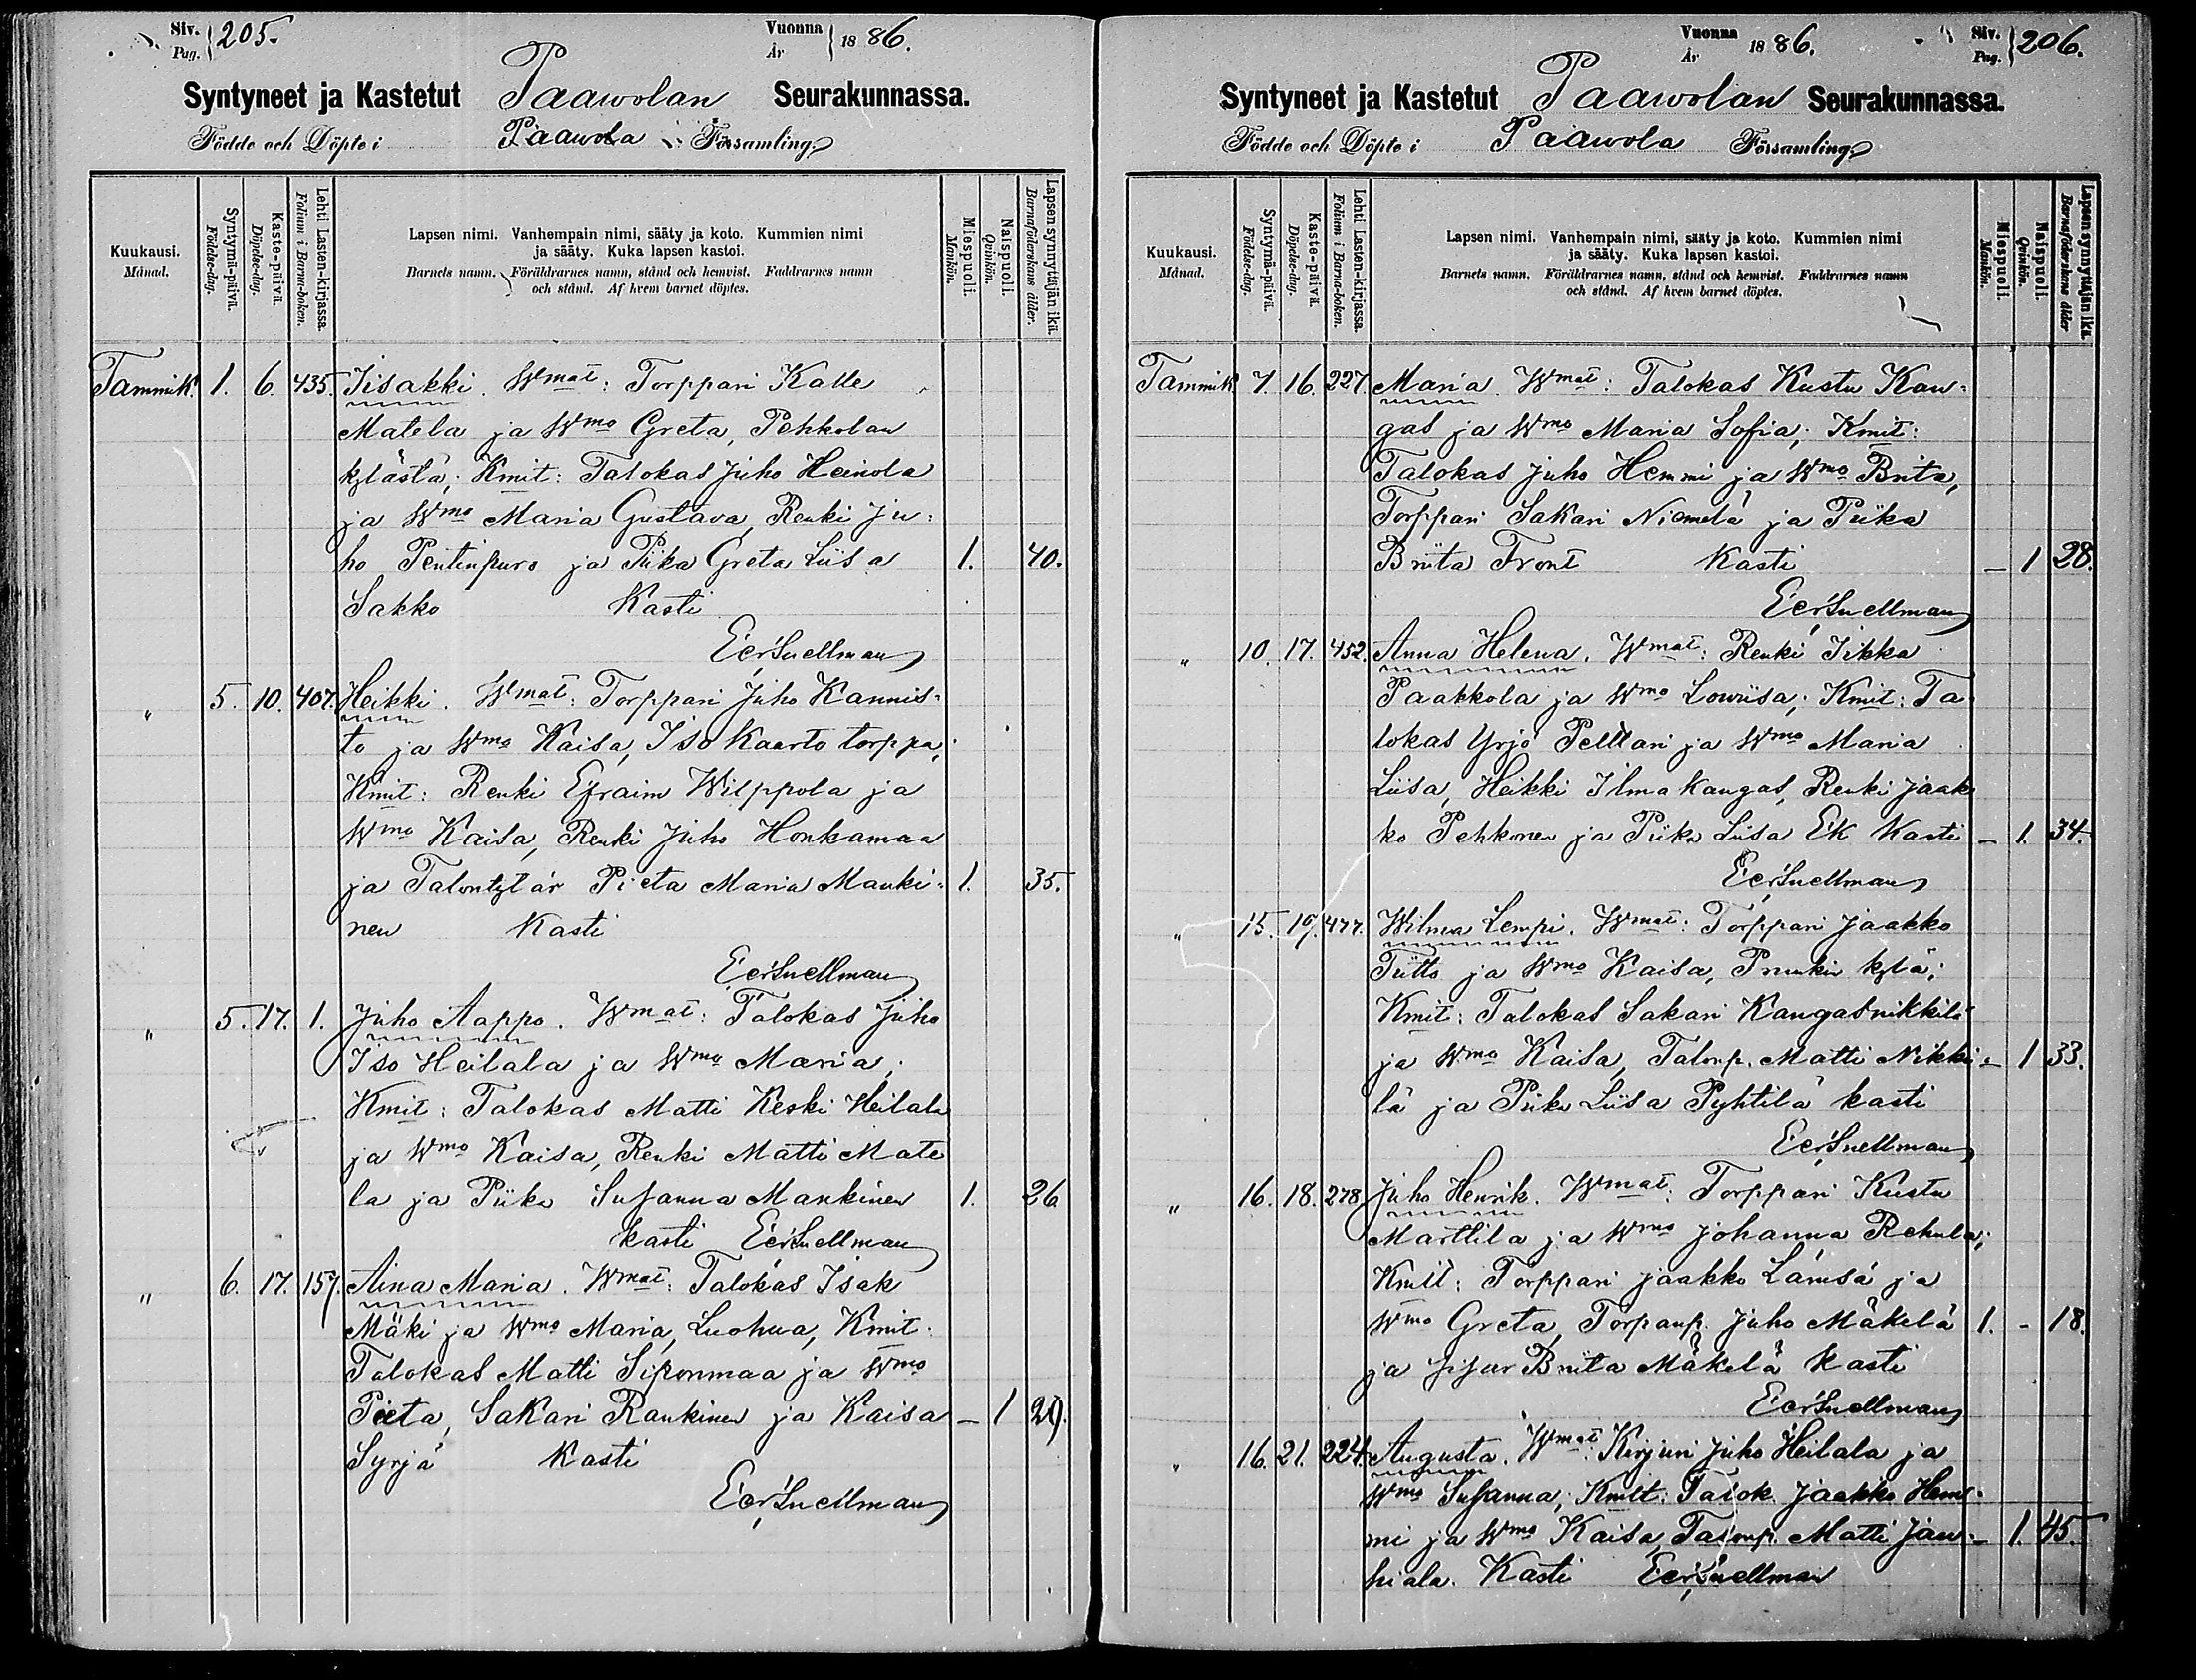 Siv. Pag. 205.
Vuonna År 1886.
Syntyneet ja Kastetut Paawolan Seurakunnassa.
Födde och Döpte i Paawola Församling.
Kuukausi. Månad.
Syntymä-päivä. Födelse-dag.
Kaste-päivä. Döpelse-dag.
Lehti Lasten-kirjassa. Folium i Barna-boken.
Lapsen nimi. Vanhempain nimi, sääty ja koto. Kummien nimi
ja sääty. Kuka lapsen kastoi.
Barnets namn. Föräldrarnes namn, stånd och hemvist. Faddrarnes namn
och stånd. Af hvem barnet döptes.
Miespuoli. Mankön.
Naispuoli. Qvinkön.
Lapsen synnyttäjän ikä. Barnaföderskans ålder.
Tammik. 1. 6. 435. Iisakki. Wmat: Torppari Kalle
Matela ja Wmo Greta, Pehkolan
kylästä; Kmit: Talokas Juho Heinola
ja Wmo Maria Gustava, Renki Ju-
ho Pentinpuro ja Piika Greta Liisa 1. 40.
Sakko Kasti
EerSnellman
" 5. 10. 407. Heikki. Wmat: Torppari Juho Kannis-
to ja Wmo Kaisa, Iso Kaarto torppa;
Kmit: Renki Efraim Wilppola ja
Wmo Kaisa, Renki Juho Honkamaa
ja Talontytär Pieta Maria Manki- 1. 35.
nen Kasti
EerSnellman
" 5. 17. 1. Juho Aappo. Wmat: Talokas Juho
Iso Heilala ja Wmo Maria;
Kmit: Talokas Matti Keski Heilala
ja Wmo Kaisa, Renki Matti Mate
la ja Piika Susanna Mankinen 1. 26
kasti EerSnellman
" 6. 17. 157. Aina Maria. Wmat: Talokas Isak
Mäki ja Wmo Maria, Luohua, Kmit.
Talokas Matti Siponmaa ja Wmo
Pieta, Sakari Rankinen ja Kaisa – 1 29.
Syrjä Kasti
EerSnellman
Vuonna År 1886.
Siv. Pag. 206.
Syntyneet ja Kastetut Paawolan Seurakunnassa.
Födde och Döpte i Paawola Församling
Kuukausi. Månad.
Syntymä-päivä. Födelse-dag.
Kaste-päivä. Döpelse-dag.
Lehti Lasten-kirjassa. Folium i Barna-boken.
Lapsen nimi. Vanhempain nimi, sääty ja koto. Kummien nimi
ja sääty. Kuka lapsen kastoi.
Barnets namn. Föräldrarnes namn, stånd och hemvist. Faddrarnes namn
och stånd. Af hvem barnet döptes.
Miespuoli. Mankön.
Naispuoli. Qvinkön.
Lapsen synnyttäjän ikä. Barnaföderskans ålder
Tammik 7. 16. 227. Maria. Wmat: Talokas Kustu Kan-
gas ja Wmo Maria Sofia; Kmit:
Talokas Juho Hemmi ja Wmo Brita,
Torppari Sakari Niemelä ja Piika
Briita Front Kasti – 1 28.
EerSnellman
" 10. 17. 452. Anna Helena. Wmat: Renki Iikka
Paakkola ja Wmo Lowiisa; Kmit: Ta-
lokas Yrjö Pelttari ja Wmo Maria
Liisa, Heikki Ilmakangas, Renki Jaak
ko Pehkonen ja Piika Liisa Ek Kasti – 1. 34.
EerSnellman
" 15. 19. 477. Wilma Lempi. Wmat: Torppari Jaakko
Tiitto ja Wmo Kaisa, kylä;
Kmit: Talokas Sakari Kangasnikkilä
ja Wmo Kaisa, Talonp. Matti Nikki- – 1 33.
lä ja Piika Liisa Pyhtilä kasti
EerSnellman
" 16. 18. 278 Juho Henrik. Wmat: Torppari Kustu
Marttila ja Wmo Johanna Rehula;
Kmit: Torppari Jaakko Lämsä ja
Wmo Greta, Torpanp. Juho Mäkelä 1. - 18.
ja sisar Briita Mäkelä kasti
EerSnellman
" 16. 21. 224. Augusta. Wmat: Kirjuri Juho Heilala ja
Wmo Susanna; Kmit: Talok. Jaakko Hem-
mi ja Wmo Kaisa, Talonp. Matti Jau- – 1. 45.
hiala. Kasti EerSnellman